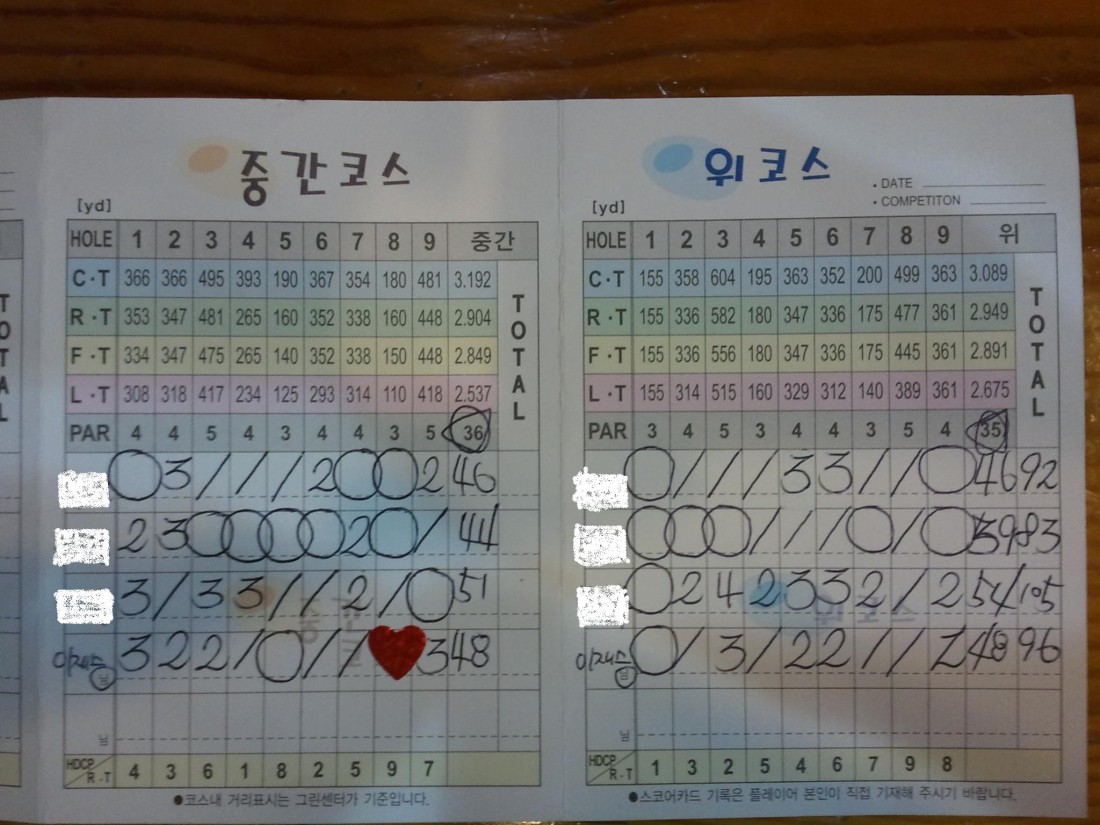 중간코스
위코스
• DATE
• COMPETITON
[yd]
[yd]
HOLE 1 2 3 4 5 6 7 8 9 중간
C·T 366 366 495 393 190 367 354 180 481 3.192
R·T 353 347 481 265 160 352 338 160 448 2.904
F·T 334 347 475 265 140 352 338 150 448 2.849
L·T 308 318 417 234 125 293 314 110 418 2.537
TOTAL
PAR 4 4 5 4 3 4 4 3 5 36
○ 3 / / / 2 ○ ○ 2 46
2 3 ○ ○ ○ ○ 2 ○ / 44
3 / 3 3 / / 2 / ○ 51
3 2 2 / ○ / / 3 48
님
님
HDCP R·T 4 3 6 1 8 2 5 9 7
●코스내 거리표시는 그린센터가 기준입니다.
HOLE 1 2 3 4 5 6 7 8 9 위
C·T 155 358 604 195 363 352 200 499 363 3.089
R·T 155 336 582 180 347 336 175 477 361 2.949
F·T 155 336 556 180 347 336 175 445 361 2.891
L·T 155 314 515 160 329 312 140 389 361 2.675
TOTAL
PAR 3 4 5 3 4 4 3 5 4 35
○ / / / 3 3 / / ○ 46 92
○ ○ ○ / / / ○ / ○ 39 83
○ 2 4 2 3 3 2 / 2 54 105
○ / 3 / 2 2 / / 2 48 96
님
님
HDCP R·T 1 3 2 5 4 6 7 9 8
●스코어카드 기록은 플레이어 본인이 직접 기재해 주시기 바랍니다.